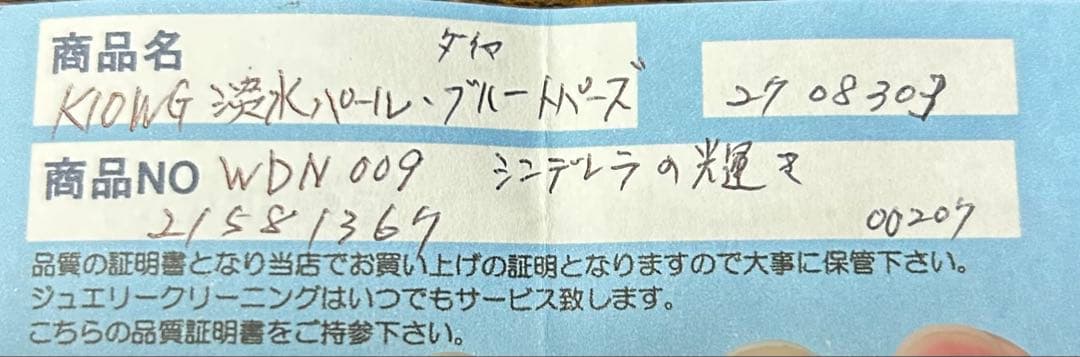 商品名 ダイヤ
K10WG 淡水パール・ブルートパーズ 270830
商品NO WDN 009 シンデレラの光運き
21581367 00207
品質の証明書となり当店でお買い上げの証明となりますので大事に保管下さい。
ジュエリークリーニングはいつでもサービス致します。
こちらの品質証明書をご持参下さい。